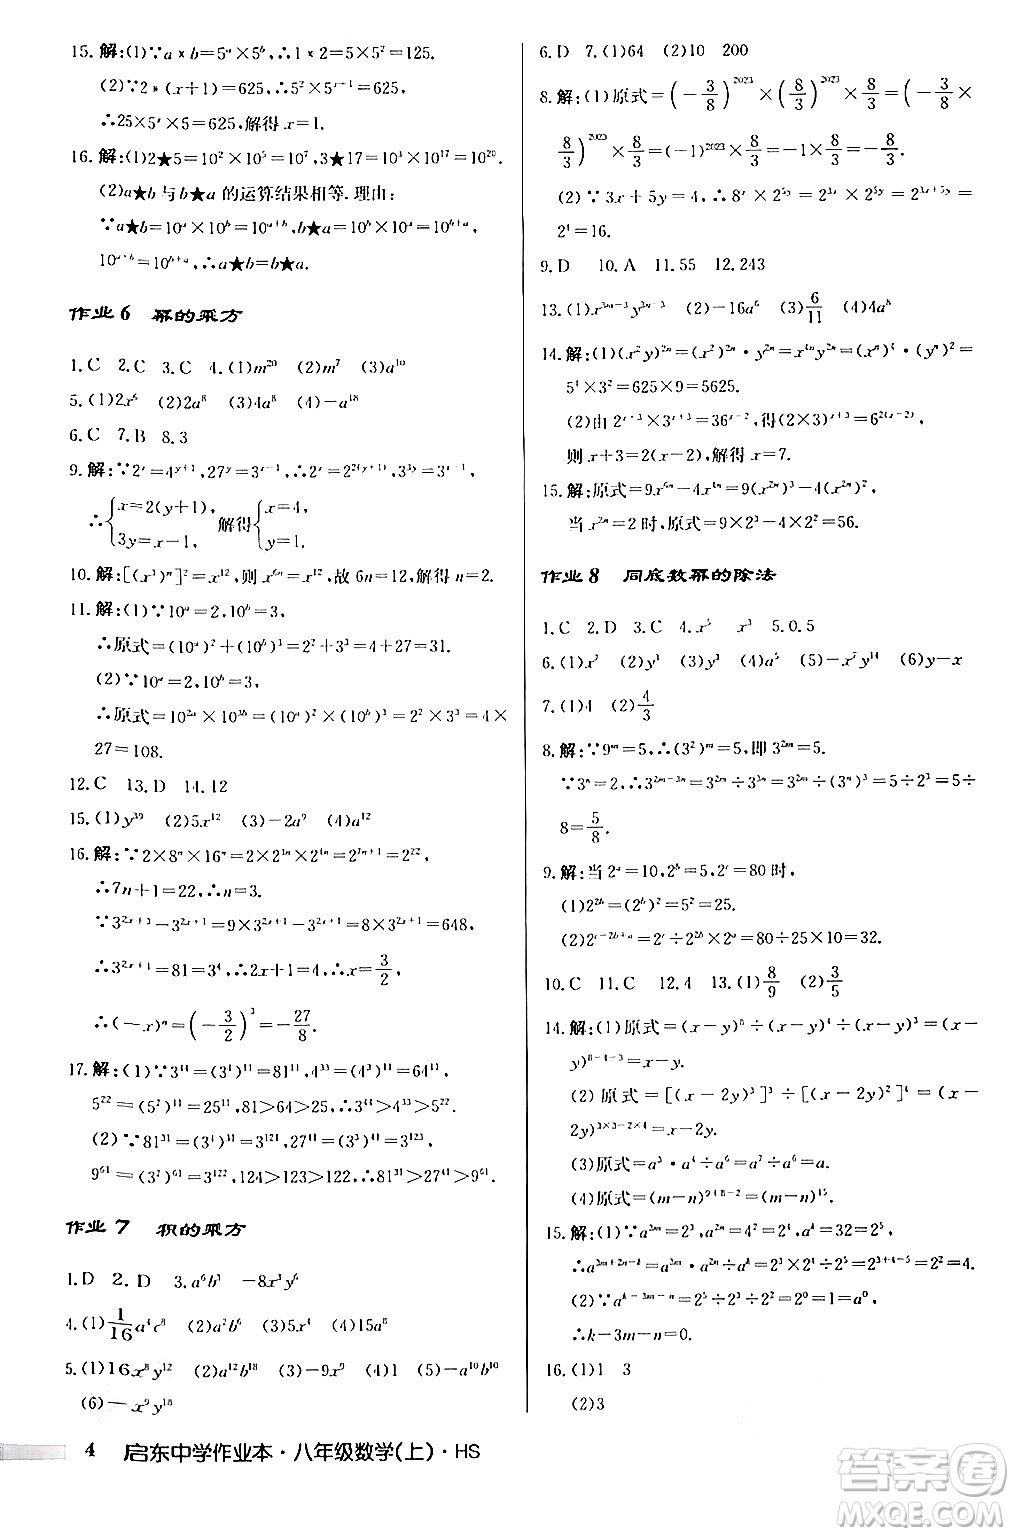 15.解:(1)∵a*b=5ᵃ×5ᵇ,∴1*2=5¹×5²=125.
(2)∵2*(x+1)=625,∴5²×5ˣ⁺¹=625,
∴25×5ˣ×5=625,解得x=1.
16.解:(1)2★5=10²×10⁵=10⁷,3★17=10³×10¹⁷=10²⁰.
(2)a★b与b★a的运算结果相等.理由:
∵a★b=10ᵃ×10ᵇ=10ᵃ⁺ᵇ,b★a=10ᵇ×10ᵃ=
10ᵃ⁺ᵇ=10ᵇ⁺ᵃ,∴a★b=b★a.
作业6 幂的乘方
1.C 2.C 3.C 4.(1)m²⁰ (2)m⁷ (3)a¹⁰
5.(1)2x⁶ (2)2a⁸ (3)4a⁸ (4)-a¹⁸
6.C 7.B 8.3
9.解:∵2ˣ=4ʸ⁺¹,27ʸ=3ˣ⁻¹,∴2ˣ=2²⁽ʸ⁺¹⁾,3³ʸ=3ˣ⁻¹,
∴{x=2(y+1), 3y=x-1, 解得{x=4, y=1.
10.解:[(x³)ⁿ]²=x¹²,则x⁶ⁿ=x¹²,故6n=12,解得n=2.
11.解:(1)∵10ᵃ=2,10ᵇ=3,
∴原式=(10ᵃ)²+(10ᵇ)³=2²+3³=4+27=31.
(2)∵10ᵃ=2,10ᵇ=3,
∴原式=10²ᵃ×10³ᵇ=(10ᵃ)²×(10ᵇ)³=2²×3³=4×
27=108.
12.C 13.D 14.12
15.(1)y³⁹ (2)5x¹² (3)-2a⁷ (4)a¹²
16.解:∵2×8ⁿ×16ⁿ=2×2³ⁿ×2⁴ⁿ=2⁷ⁿ⁺¹=2²²,
∴7n+1=22,∴n=3.
∵3²ˣ⁺³-3²ˣ⁺¹=9×3²ˣ⁺¹-3²ˣ⁺¹=8×3²ˣ⁺¹=648,
∴3²ˣ⁺¹=81=3⁴,∴2x+1=4,∴x=3/2
∴(-x)ⁿ=(-3/2)³=-27/8.
17.解:(1)∵3⁴⁴=(3⁴)¹¹=81¹¹,4³³=(4³)¹¹=64¹¹,
5²²=(5²)¹¹=25¹¹,81>64>25,∴3⁴⁴>4³³>5²².
(2)∵81³¹=(3⁴)³¹=3¹²⁴,27⁴¹=(3³)⁴¹=3¹²³,
9⁶¹=(3²)⁶¹=3¹²²,124>123>122,∴81³¹>27⁴¹>9⁶¹.
作业7 积的乘方
1.D 2.D 3.a⁶b³ -8x³y⁶
4.(1)1/16a⁴c⁸ (2)a²b⁶ (3)5x⁴ (4)15a⁸
5.(1)16x⁸y¹² (2)a¹²b¹⁸ (3)-9x⁹ (4)-a¹⁰b¹⁵
(6)-x⁹y¹⁸
6.D 7.(1)64 (2)10 200
8.解:(1)原式=(-3/8)²⁰²³×(8/3)²⁰²³×8/3=(-3/8×
8/3)²⁰²³×8/3=(-1)²⁰²³×8/3=-8/3.
(2)∵3x+5y=4,∴8ˣ×2⁵ʸ=2³ˣ×2⁵ʸ=2³ˣ⁺⁵ʸ=
2⁴=16.
9.D 10.A 11.55 12.243
13.(1)x³ᵐ⁻³y³ᵐ (2)-16a⁶ (3)6/11 (4)4a⁸
14.解:(1)(x²y)²ⁿ=(x²)²ⁿ·y²ⁿ=x⁴ⁿy²ⁿ=(xⁿ)⁴·(yⁿ)²=
5⁴×3²=625×9=5625.
(2)由2ˣ⁺³×3ˣ⁺³=36ˣ⁻²,得(2×3)ˣ⁺³=6²⁽ˣ⁻²⁾,
则x+3=2(x-2),解得x=7.
15.解:原式=9x⁶ⁿ-4x⁴ⁿ=9(x²ⁿ)³-4(x²ⁿ)²,
当x²ⁿ=2时,原式=9×2³-4×2²=56.
作业8 同底数幂的除法
1.C 2.D 3.C 4.x⁵ x³ 5.0.5
6.(1)x⁷ (2)y³ (3)y³ (4)a⁵ (5)-x⁷y¹⁴ (6)y-x
7.(1)4 (2)4/3
8.解:∵9ᵐ=5,∴(3²)ᵐ=5,即3²ᵐ=5.
∵3ⁿ=2,∴3²ᵐ⁻³ⁿ=3²ᵐ÷3³ⁿ=3²ᵐ÷(3ⁿ)³=5÷2³=5÷
8=5/8.
9.解:当2ᵃ=3,2ᵇ=5,2ᶜ=80时,
(1)2²ᵇ=(2ᵇ)²=5²=25.
(2)2ᶜ⁻²ᵇ⁺ᵃ=2ᶜ÷2²ᵇ×2ᵃ=80÷25×3=9.6.
10.C 11.C 12.4 13.(1)8/9 (2)3/5
14.解:(1)原式=(x-y)⁸÷(x-y)⁴÷(x-y)³=(x-
y)⁸⁻⁴⁻³=x-y.
(2)原式=[(x-2y)³]³÷[(x-2y)²]⁴=(x-
2y)³ˣ³⁻²ˣ⁴=x-2y.
(3)原式=a³·a⁴÷a⁶=a⁷÷a⁶=a.
(4)原式=(m-n)⁹⁺⁸⁻²=(m-n)¹⁵.
15.解:(1)∵a³ᵐ=2³,a²ⁿ=2⁴,aᵏ=32=2⁵,
∴a³ᵐ⁺²ⁿ⁻ᵏ=a³ᵐ·a²ⁿ÷aᵏ=2³×2⁴÷2⁵=2³⁺⁴⁻⁵=2²=4.
(2)∵aᵏ⁻³ᵐ⁻ⁿ=2⁵÷2³÷2²=2⁰=1=a⁰,
∴k-3m-n=0.
16.(1)1 3
(2)3
4 启东中学作业本·八年级数学(上)·HS
答案圈
MXQE.COM